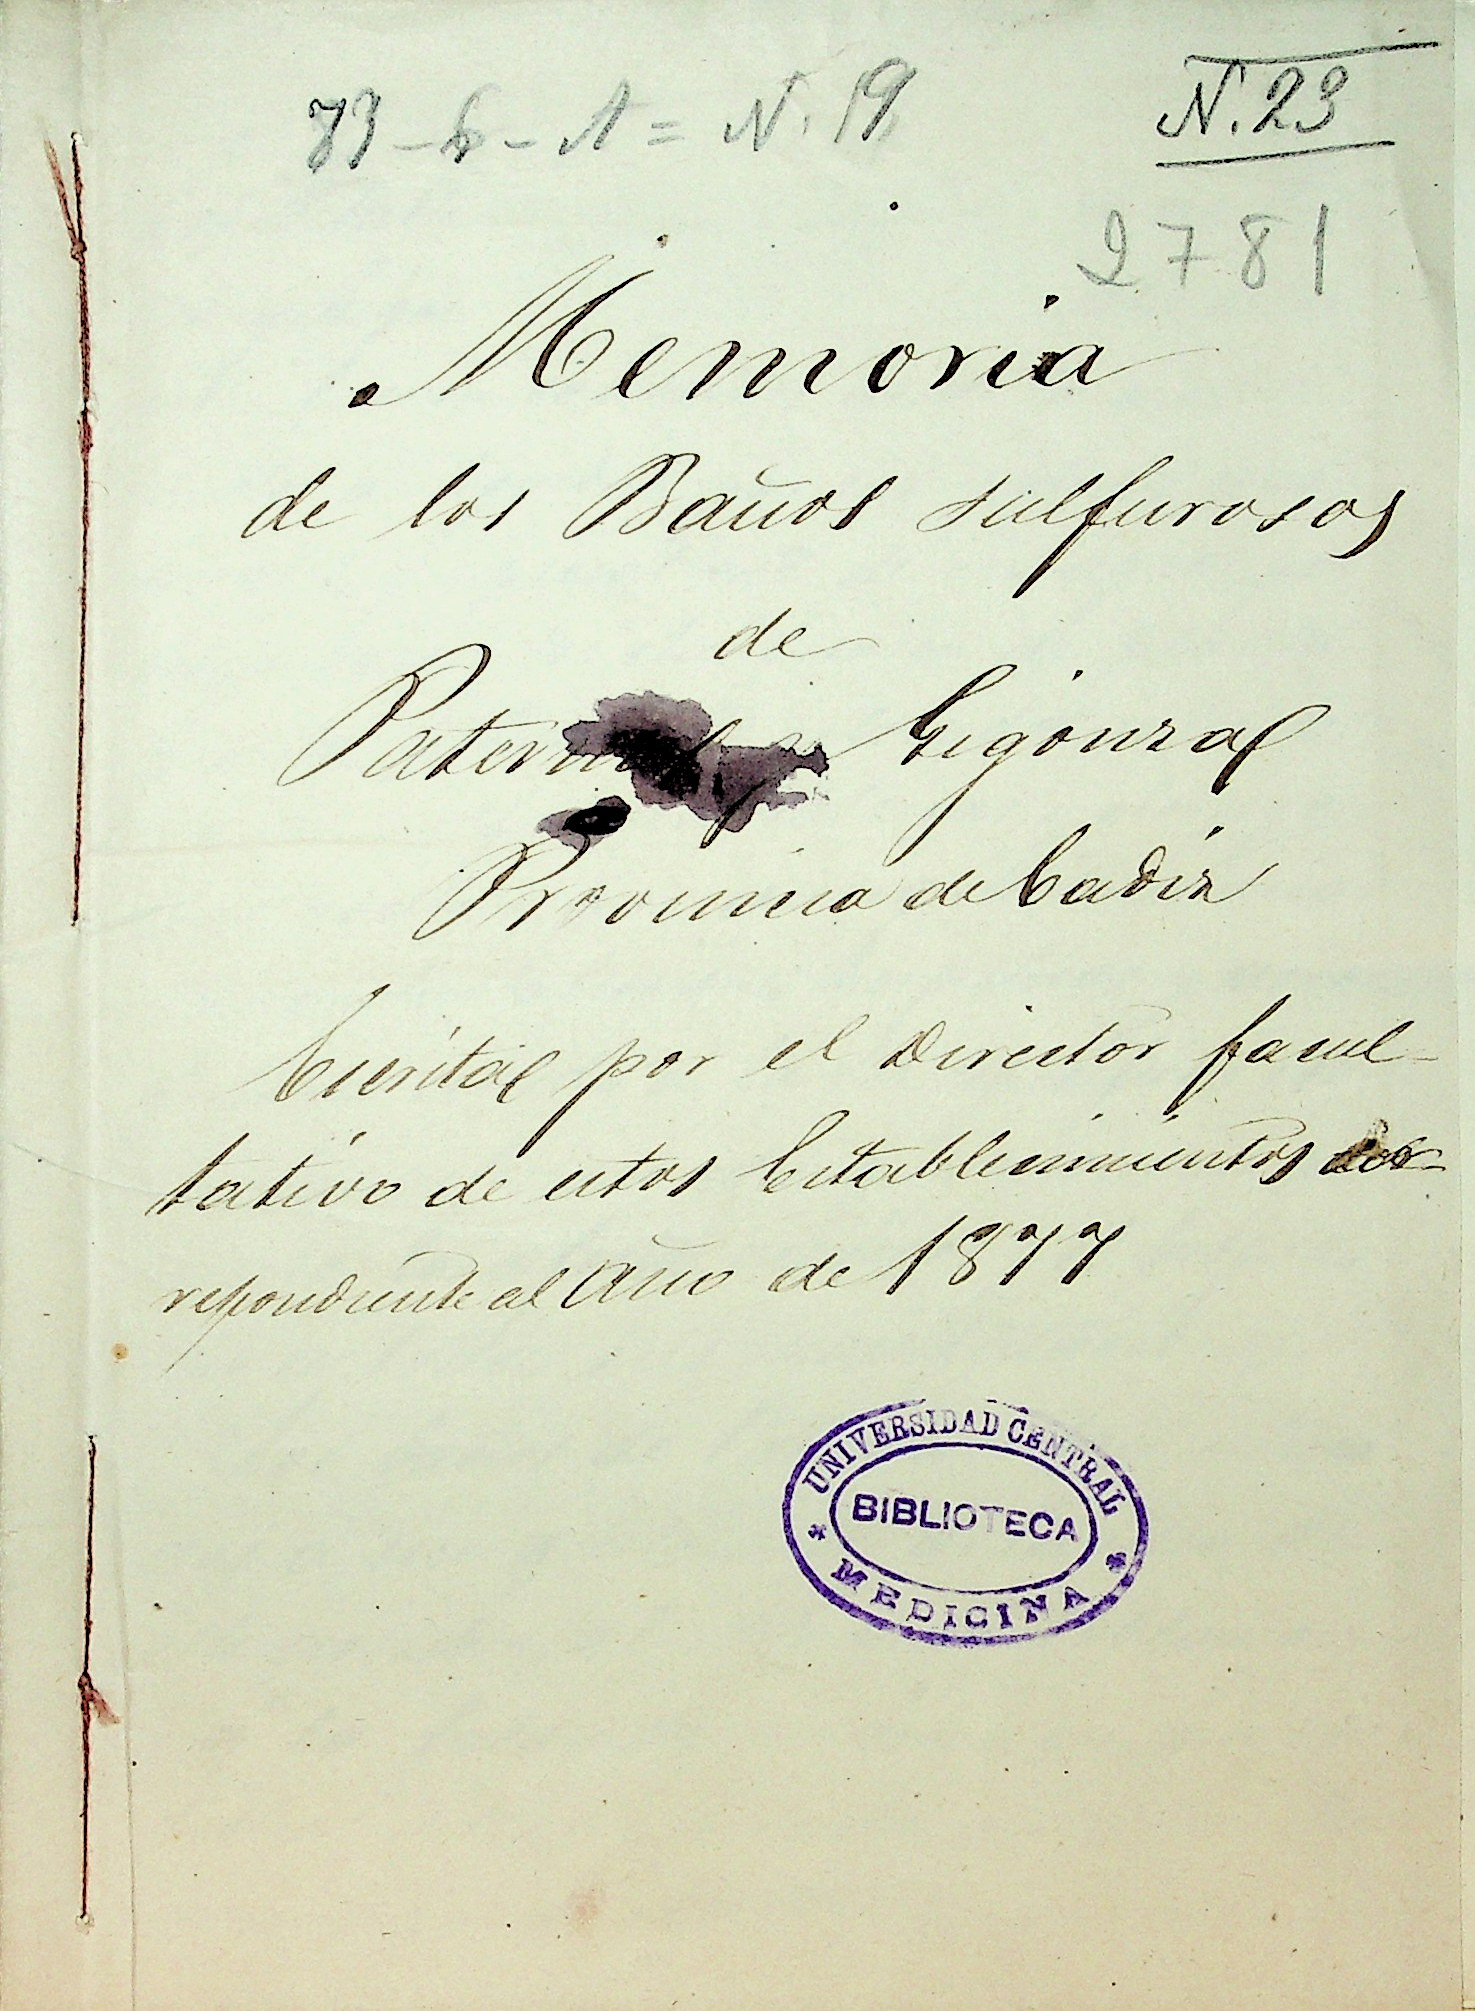 73-6-A = N. 19
N. 23
2781
Memoria
de los Baños sulfurosos
de
Paterna y Gigonzas
Provincia de Cadiz
Escritas por el Director facul-
tativo de estos Establecimientos cor-
respondiente al Año de 1877
UNIVERSIDAD CENTRAL
BIBLIOTECA
MEDICINA